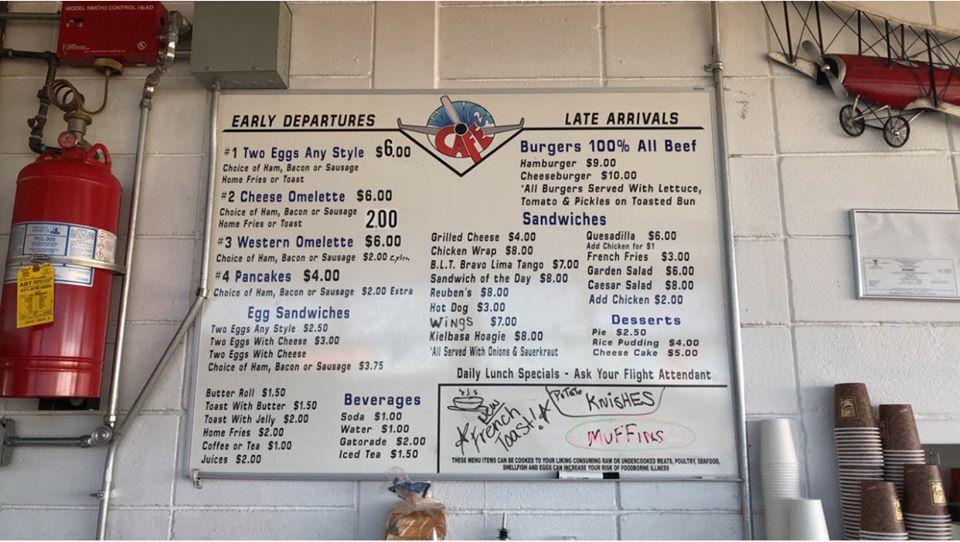 MODEL NMCH3 CONTROL HEAD
EARLY DEPARTURES
CAFE
LATE ARRIVALS
#1 Two Eggs Any Style $6.00
Choice of Ham, Bacon or Sausage
Home Fries or Toast
#2 Cheese Omelette $6.00
Choice of Ham, Bacon or Sausage 2.00
Home Fries or Toast
#3 Western Omelette $6.00
Choice of Ham, Bacon or Sausage $2.00
#4 Pancakes $4.00
Choice of Ham, Bacon or Sausage $2.00 Extra
Egg Sandwiches
Two Eggs Any Style $2.50
Two Eggs With Cheese $3.00
Two Eggs With Cheese
Choice of Ham, Bacon or Sausage $3.75
Butter Roll $1.50
Toast With Butter $1.50
Toast With Jelly $2.00
Home Fries $2.00
Coffee or Tea $1.00
Juices $2.00
Beverages
Soda $1.00
Water $1.00
Gatorade $2.00
Iced Tea $1.50
Burgers 100% All Beef
Hamburger $9.00
Cheeseburger $10.00
*All Burgers Served With Lettuce,
Tomato & Pickles on Toasted Bun
Sandwiches
Grilled Cheese $4.00
Chicken Wrap $8.00
B.L.T. Bravo Lima Tango $7.00
Sandwich of the Day $8.00
Reuben's $8.00
Hot Dog $3.00
Wings $7.00
Kielbasa Hoagie $8.00
*All Served With Onions & Sauerkraut
Quesadilla $6.00
Add Chicken for $1
French Fries $3.00
Garden Salad $6.00
Caesar Salad $8.00
Add Chicken $2.00
Desserts
Pie $2.50
Rice Pudding $4.00
Cheese Cake $5.00
Daily Lunch Specials - Ask Your Flight Attendant
New
French
Toast!
POTATO KNISHES
MUFFINS
THESE MENU ITEMS CAN BE COOKED TO YOUR LIKING CONSUMING RAW OR UNDERCOOKED MEATS, POULTRY, SEAFOOD,
SHELLFISH AND EGGS CAN INCREASE YOUR RISK OF FOODBORNE ILLNESS
PCL-300